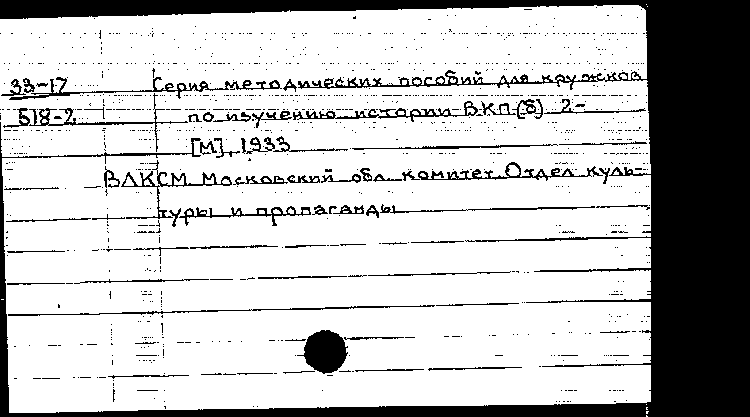 33-17 Серия методических пособий для кружков
518-2 по изучению истории ВКП(б) 2-
[М], 1933
ВЛКСМ. Московский обл. комитет. Отдел куль-
туры и пропаганды